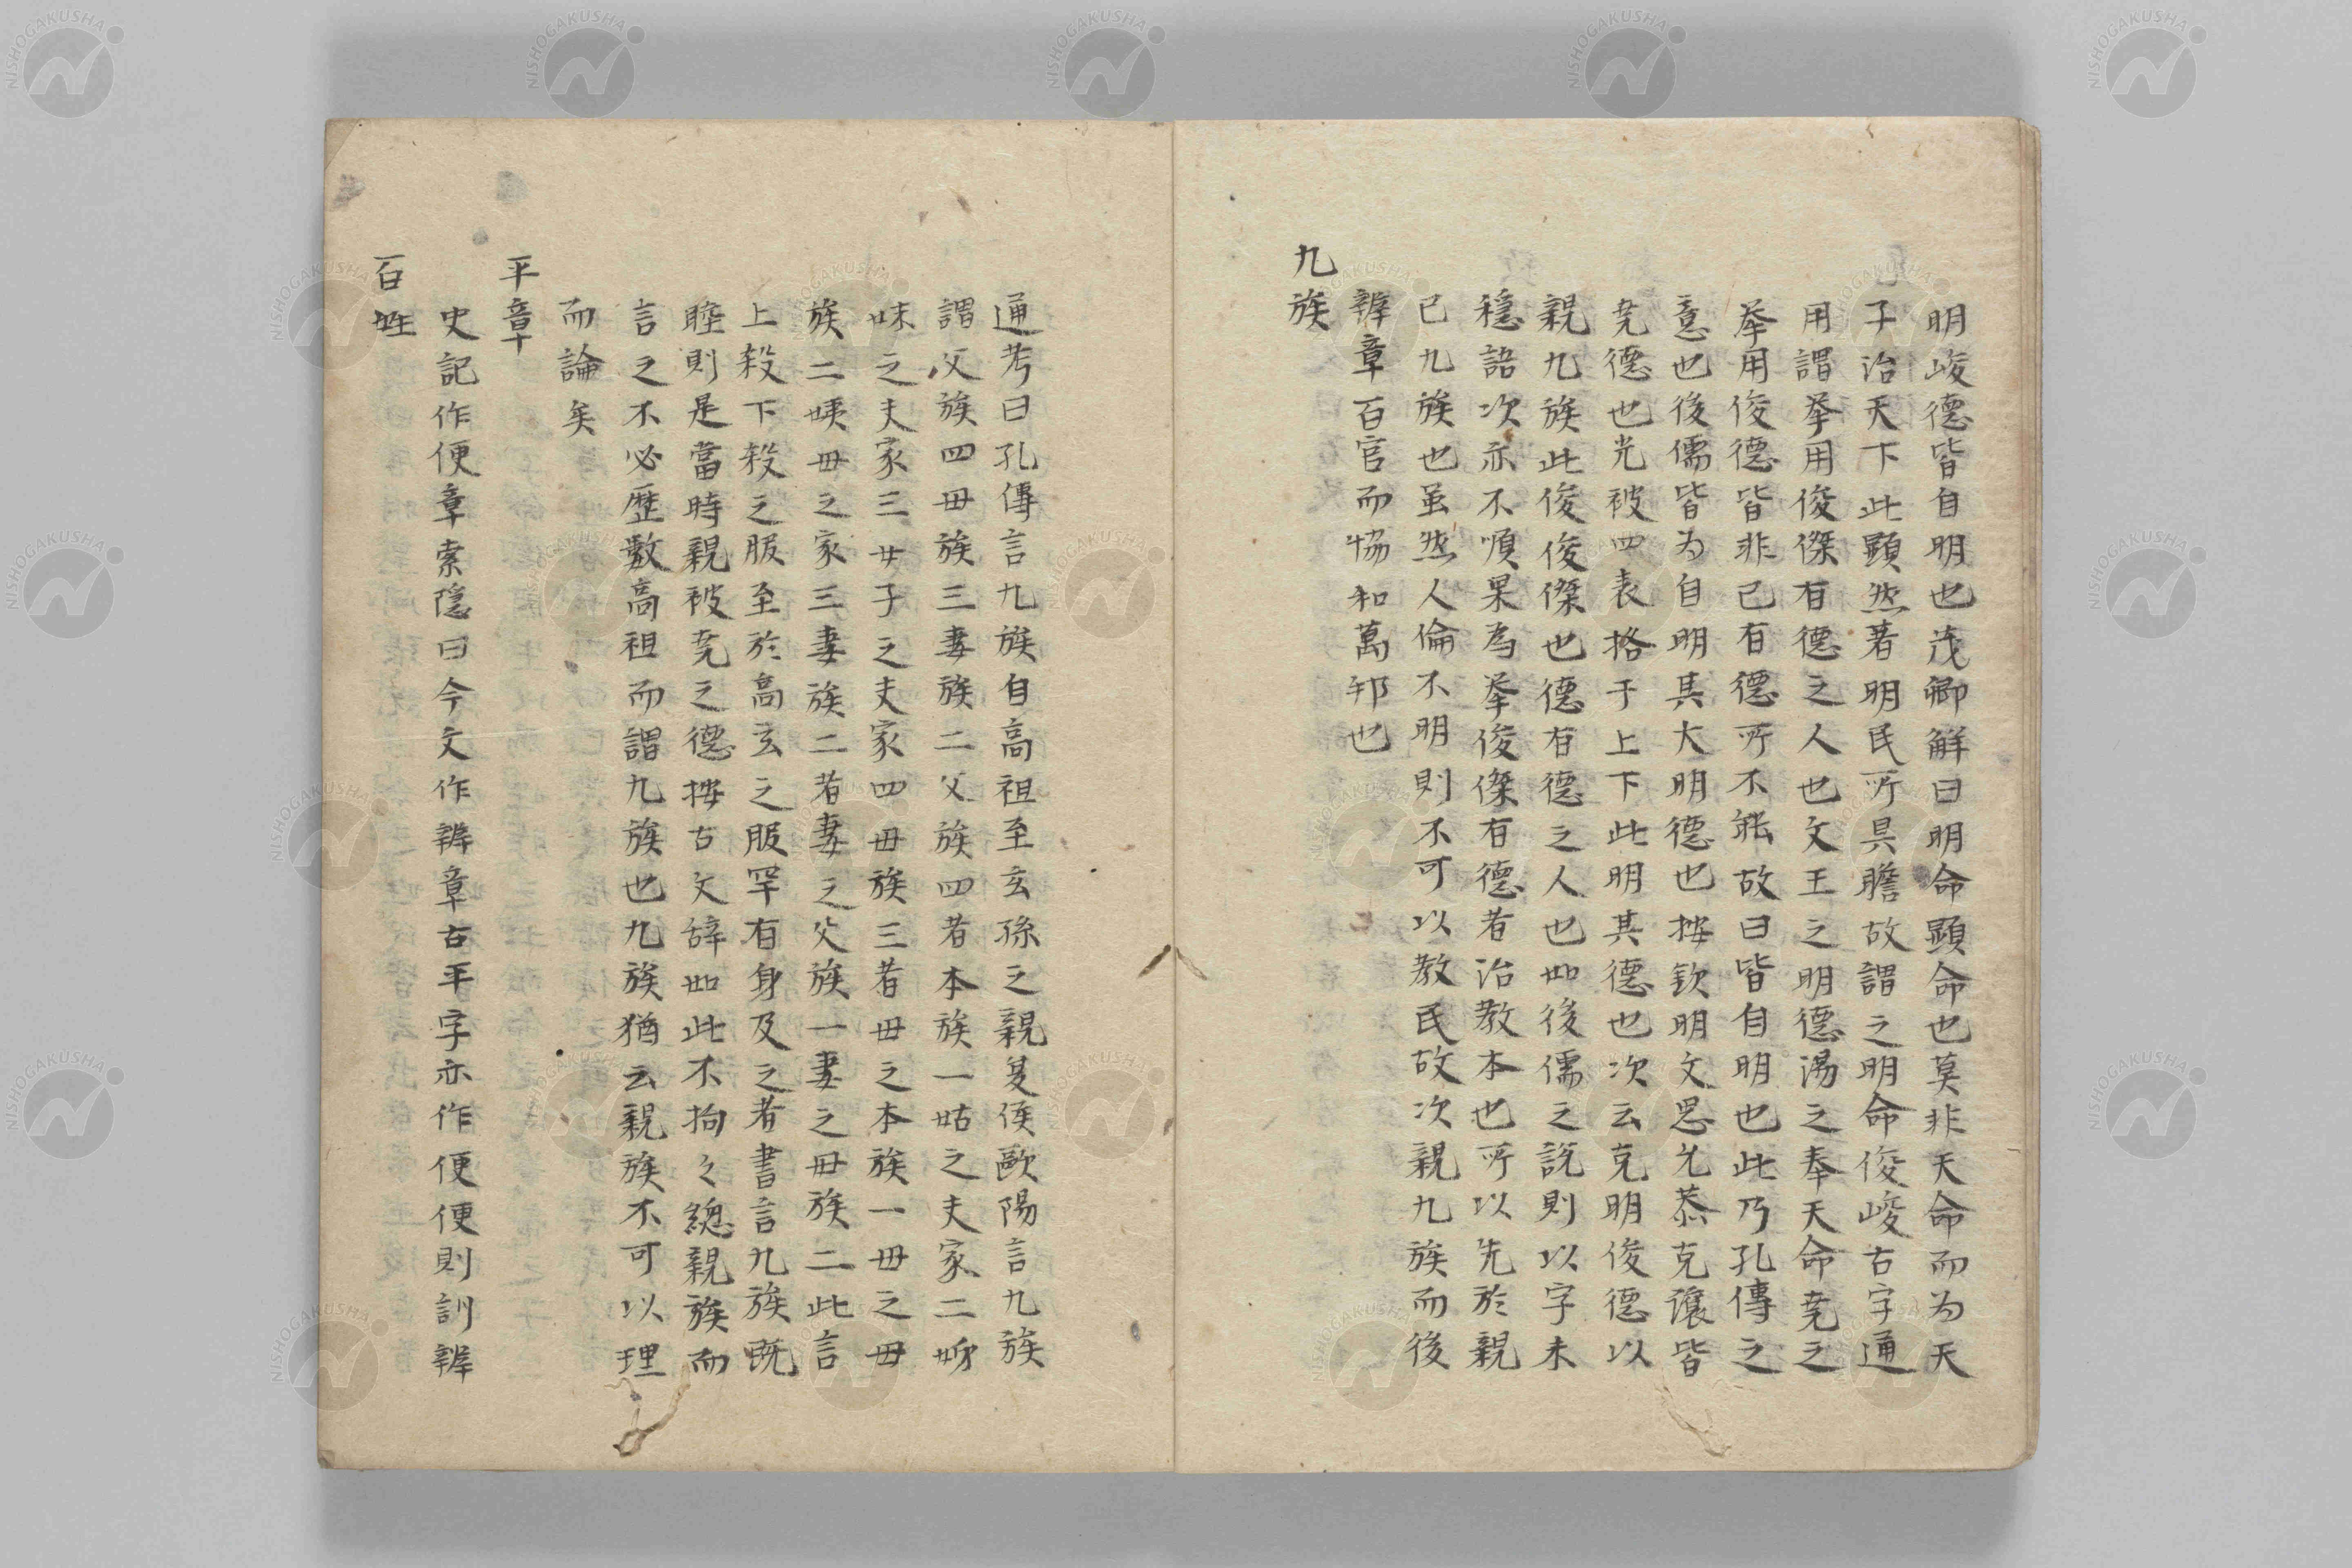 明峻德皆自明也茂卿解曰明命顕命也莫非天命而为天
子治天下此顕然著明民所具瞻故謂之明命俊峻古字通
用謂挙用俊傑有德之人也文王之明德湯之奉天命尭之
挙用俊德皆非己有德所不能故曰皆自明也此乃孔傳之
意也後儒皆为自明其大明德也按欽明文思允恭克讓皆
尭德也光被四表格于上下此明其德也次云克明俊德以
親九族此俊俊傑也德有德之人也如後儒之説則以字未
穏語次亦不順果為挙俊傑有德者治教本也所以先於親
已九族也虽然人倫不明則不可以教民故次親九族而後
辨章百官而恊和萬邦也
九族
通考曰孔傳言九族自高祖至玄孫之親夏侯歐陽言九族
謂父族四毋族三妻族二父族四者本族一姑之夫家二姊
妹之夫家三女子之夫家四毋族三者毋之本族一毋之毋
族二姨毋之家三妻族二者妻之父族一妻之毋族二此言
上殺下殺之服至於高玄之服罕有身及之者書言九族既
睦則是當時親被尭之德按古文辞如此不拘々總親族而
言之不必歴數高祖而謂九族也九族猶云親族不可以理
而論矣
平章
史記作便章索隠曰今文作辨章古平字亦作便便則訓辨
百姓